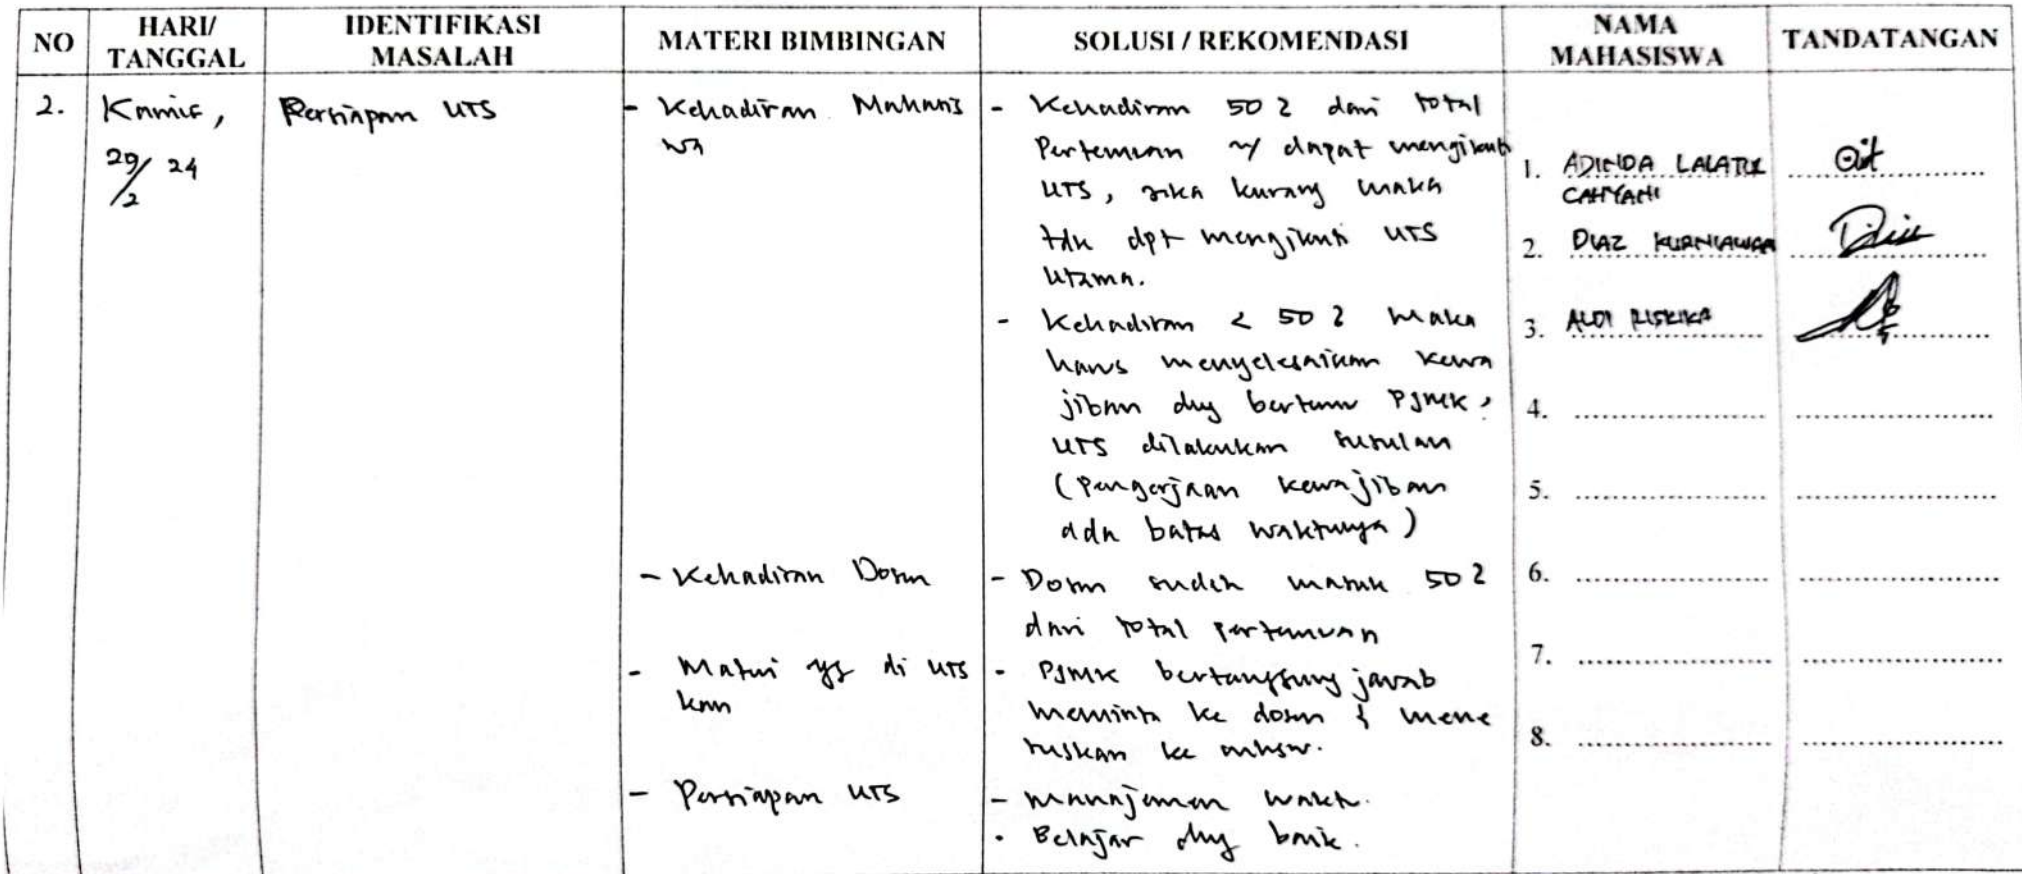 NO
HARI/
TANGGAL
IDENTIFIKASI
MASALAH
MATERI BIMBINGAN
SOLUSI / REKOMENDASI
NAMA
MAHASISWA
TANDATANGAN
2.
Kamis,
29/2 24
Persiapan UTS
- Kehadiran Mahasis
wa
- Kehadiran 50 % dari total
Pertemuan u/ dapat mengikuti
UTS, jika kurang maka
tdk dpt mengikuti UTS
Utama.
- Kehadiran < 50 % maka
harus menyelesaikan kewa
jiban dng bertemu PJMK,
UTS dilakukan susulan
(Pengerjaan kewajiban
ada batas waktunya)
- Kehadiran Dosen
- Dosen sudah masuk 50 %
dari total pertemuan
- Materi yg di UTS
kan
- PJMK bertanggung jawab
meminta ke dosen & mene
ruskan ke mhsw.
- Persiapan UTS
- Manajemen waktu.
- Belajar dng baik.
1. ADINDA LALATUL
CAHYANI
2. DIAZ KURNIAWAN
3. ALDI RISKIKA
4.
5.
6.
7.
8.